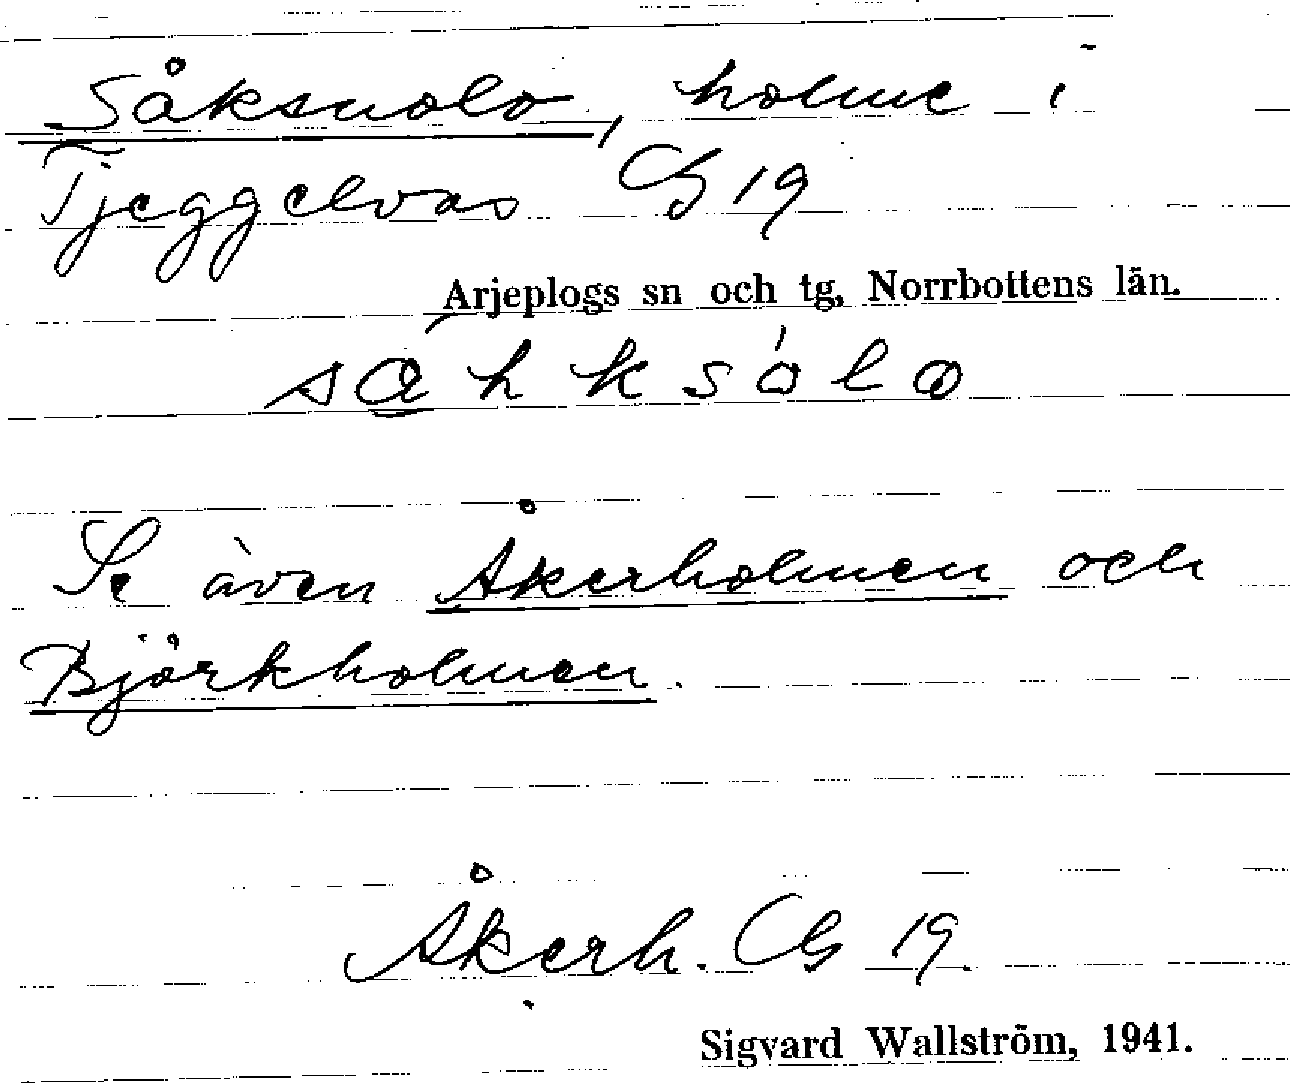 Såksuolo, holme i
Tjeggelvas CG 19
Arjeplogs sn och tg, Norrbottens län.
Se även Åkerholmen och
Björkholmen.
Åkerh. CG 19
Sigvard Wallström, 1941.